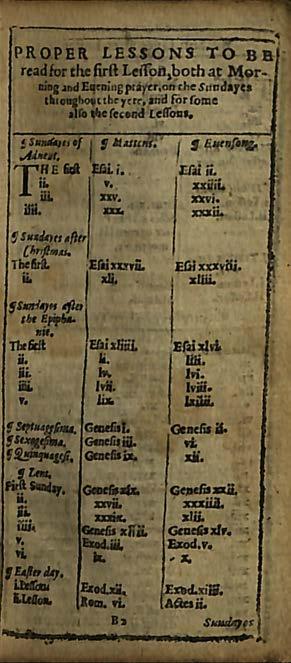 PROPER LESSONS TO BE
read for the first Lesson, both at Mor-
ning and Euening prayer, on the Sundayes
throughout the yere, and for some
also the second Lessons.
¶ Sundayes of Aduent. ¶ Mattens. ¶ Euensong.
THE first Esai. i. Esai ii.
ii. v. xxiiii.
iii. xxv. xxvi.
iiii. xxx. xxxii.
¶ Sundayes after
Christmas.
The first. Esai xxxvii. Esai xxxviii.
ii. xli. xliii.
¶ Sundayes after
the Epipha-
nie.
The first Esai xliiii. Esai xlvi.
ii. li. liii.
iii. lv. lvi.
iiii. lvii. lviii.
v. lix. lxiiii.
¶ Septuagesima. Genesis i. Genesis ii.
¶ Sexagesima. Genesis iii. vi.
¶ Quinquagesi. Genesis ix. xii.
¶ Lent.
First Sunday. Genesis xix. Genesis xxii.
ii. xxvii. xxxiiii.
iii. xxxix. xlii.
iiii. Genesis xliii Genesis xlv.
v. Exod. iii. Exod. v.
vi. ix. x.
¶ Easter day.
i. Lesson Exod. xii. Exod. xiiii.
ii. Lesson. Rom. vi. Actes ii.
B2 Sundayes